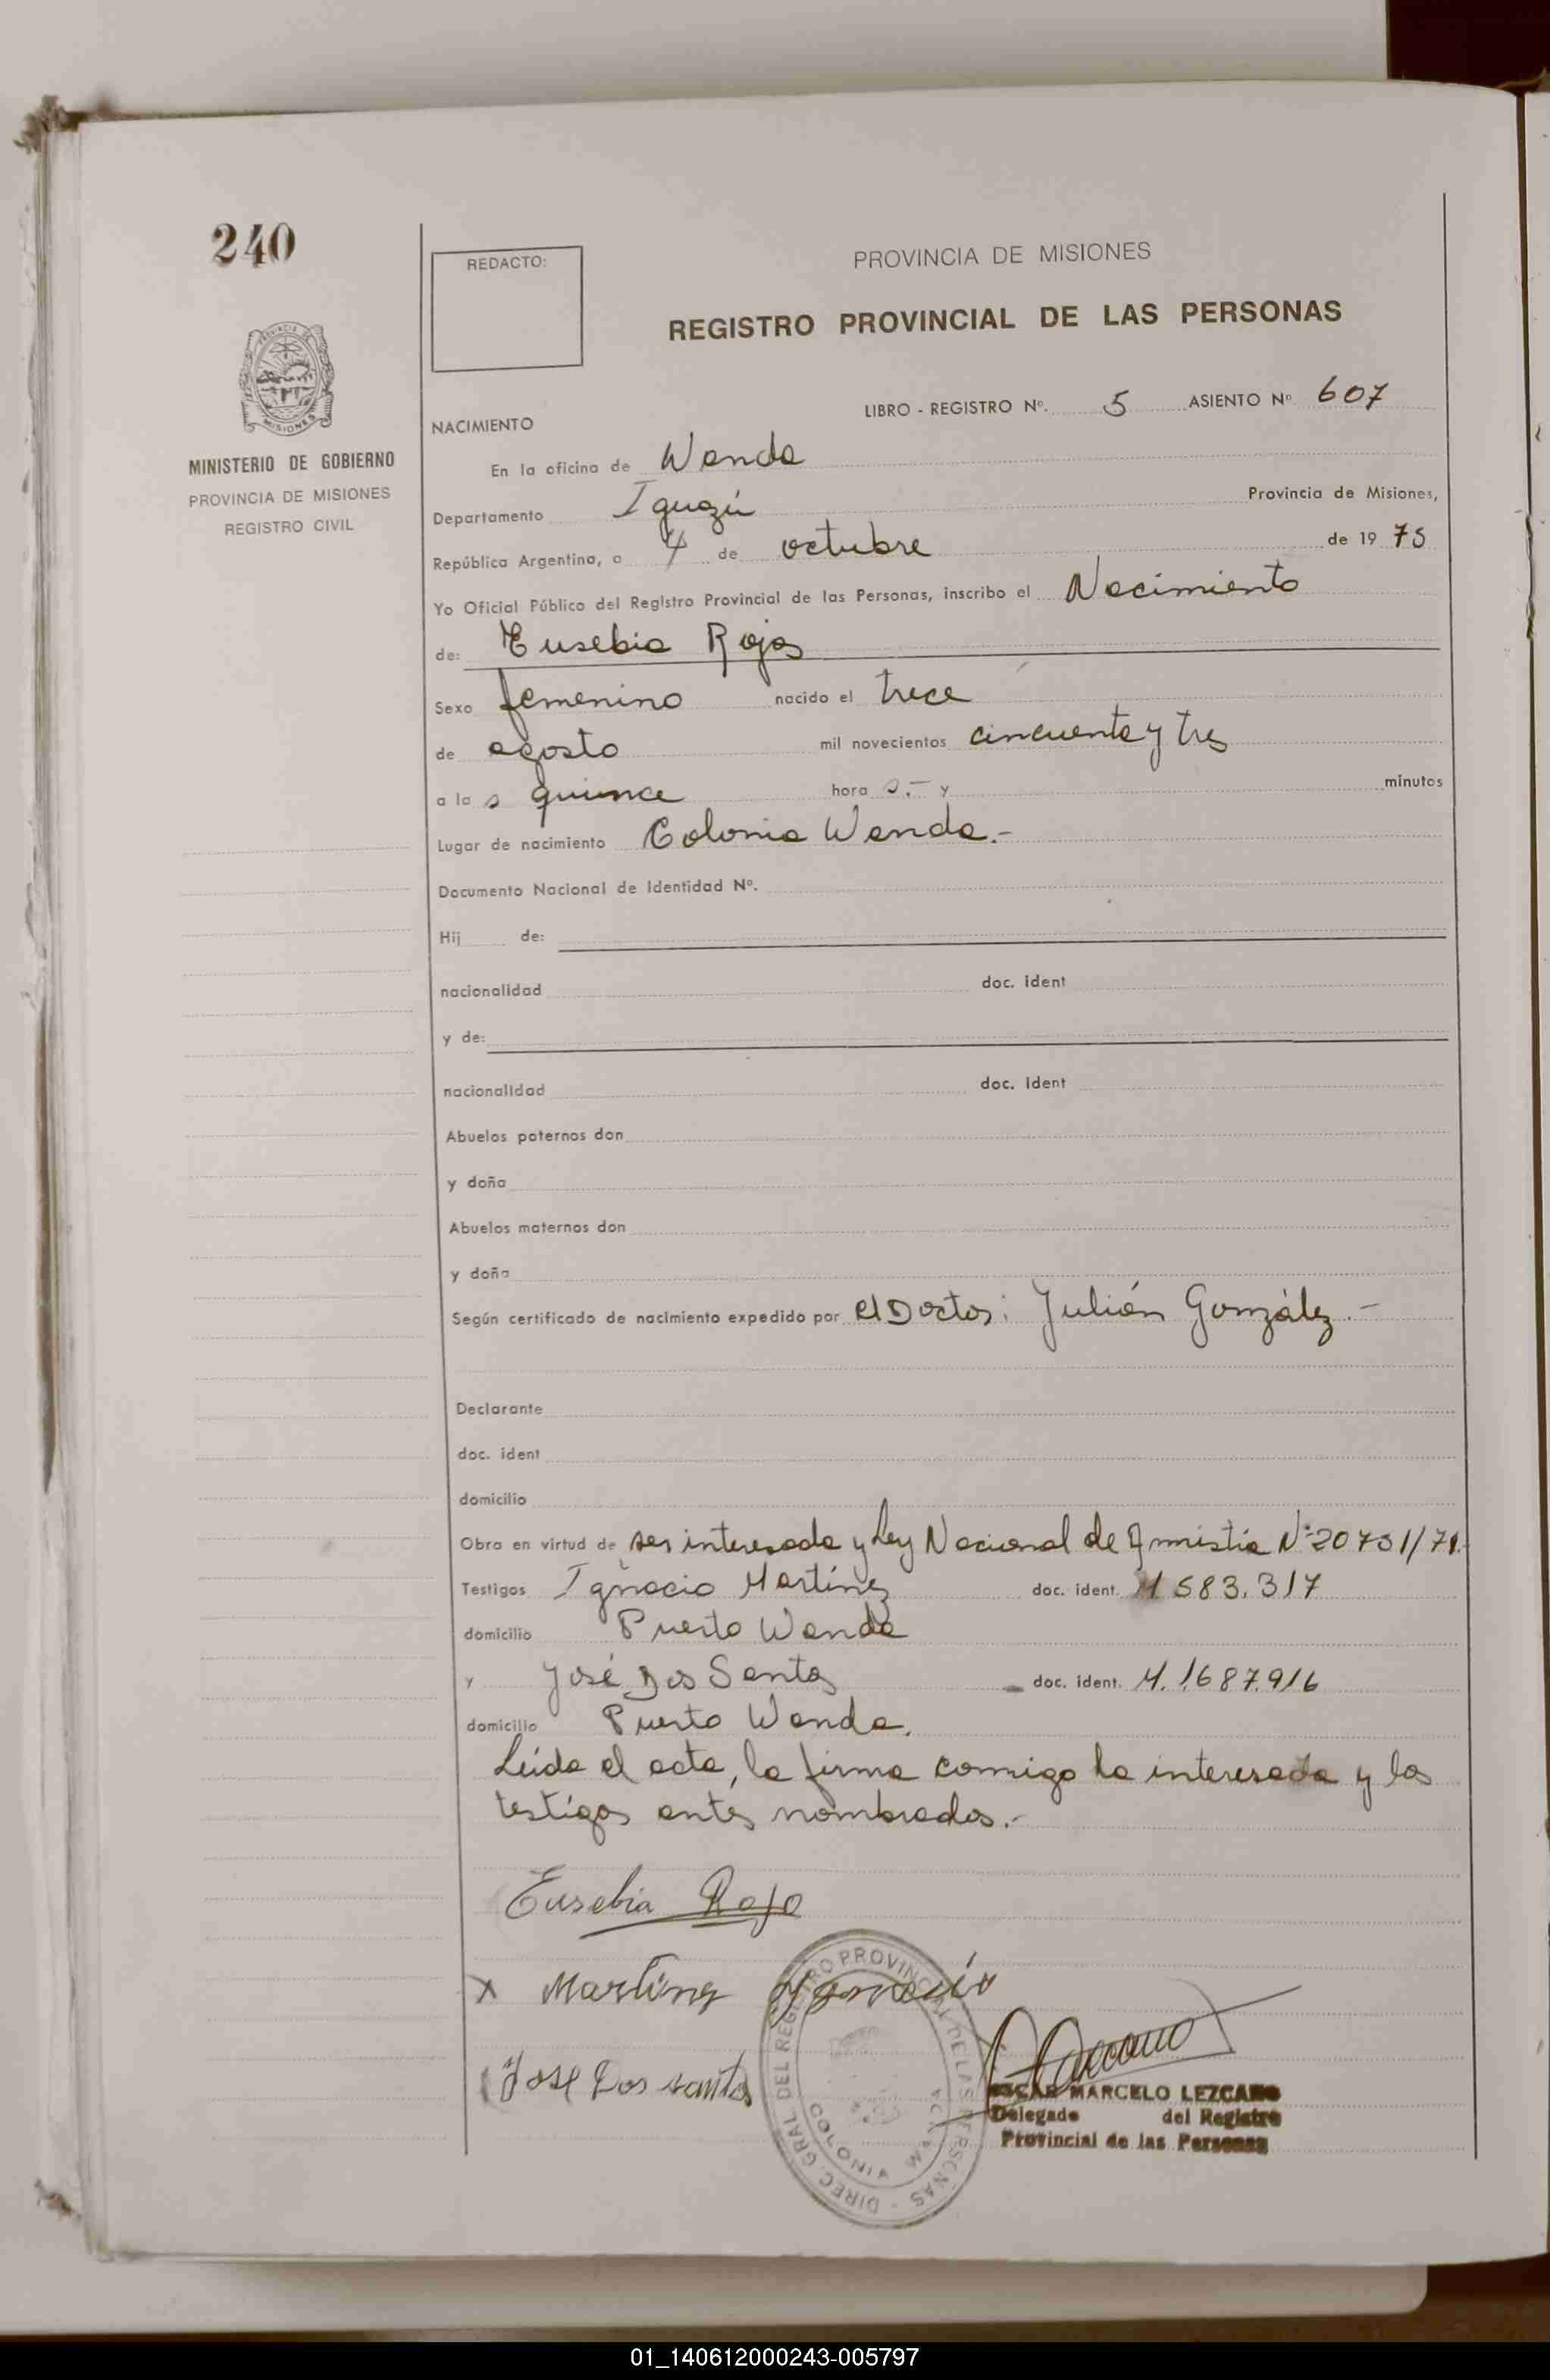 240
REDACTO:
PROVINCIA DE MISIONES
REGISTRO PROVINCIAL DE LAS PERSONAS
MINISTERIO DE GOBIERNO
PROVINCIA DE MISIONES
REGISTRO CIVIL
LIBRO - REGISTRO Nº. 5 ASIENTO Nº 607
NACIMIENTO
En la oficina de Wanda
Departamento Iguazú Provincia de Misiones,
República Argentina, a 4 de octubre de 1975
Yo Oficial Público del Registro Provincial de las Personas, inscribo el Nacimiento
de: Eusebia Rojas
Sexo femenino nacido el trece
de agosto mil novecientos cincuenta y tres
a las quince hora s.- y minutos
Lugar de nacimiento Colonia Wanda.-
Documento Nacional de Identidad Nº.
Hij de:
nacionalidad doc. ident
y de:
nacionalidad doc. ident
Abuelos paternos don
y doña
Abuelos maternos don
y doña
Según certificado de nacimiento expedido por el Doctor: Julián González.-
Declarante
doc. ident
domicilio
Obra en virtud de ser interesada y Ley Nacional de Amnistia Nº 20751/74.
Testigos Ignacio Martínez doc. ident. M 583.317
domicilio Puerto Wanda
y José Dos Santos doc. ident. M. 1.687.916
domicilio Puerto Wanda.
Leida el acta, la firma comigo la interesada y los
testigos antes nombrados.-
Eusebia Rojo
x Martinez
Jose Dos santos
DIREC. GRAL. DEL REGISTRO PROVINCIAL DE LAS PERSONAS
COLONIA WANDA
OSCAR MARCELO LEZCANO
Delegado del Registro
Provincial de las Personas
01_140612000243-005797